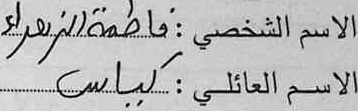 الاسم الشخصي : فاطمة الزهراء
الاسم العائلي : كيباس